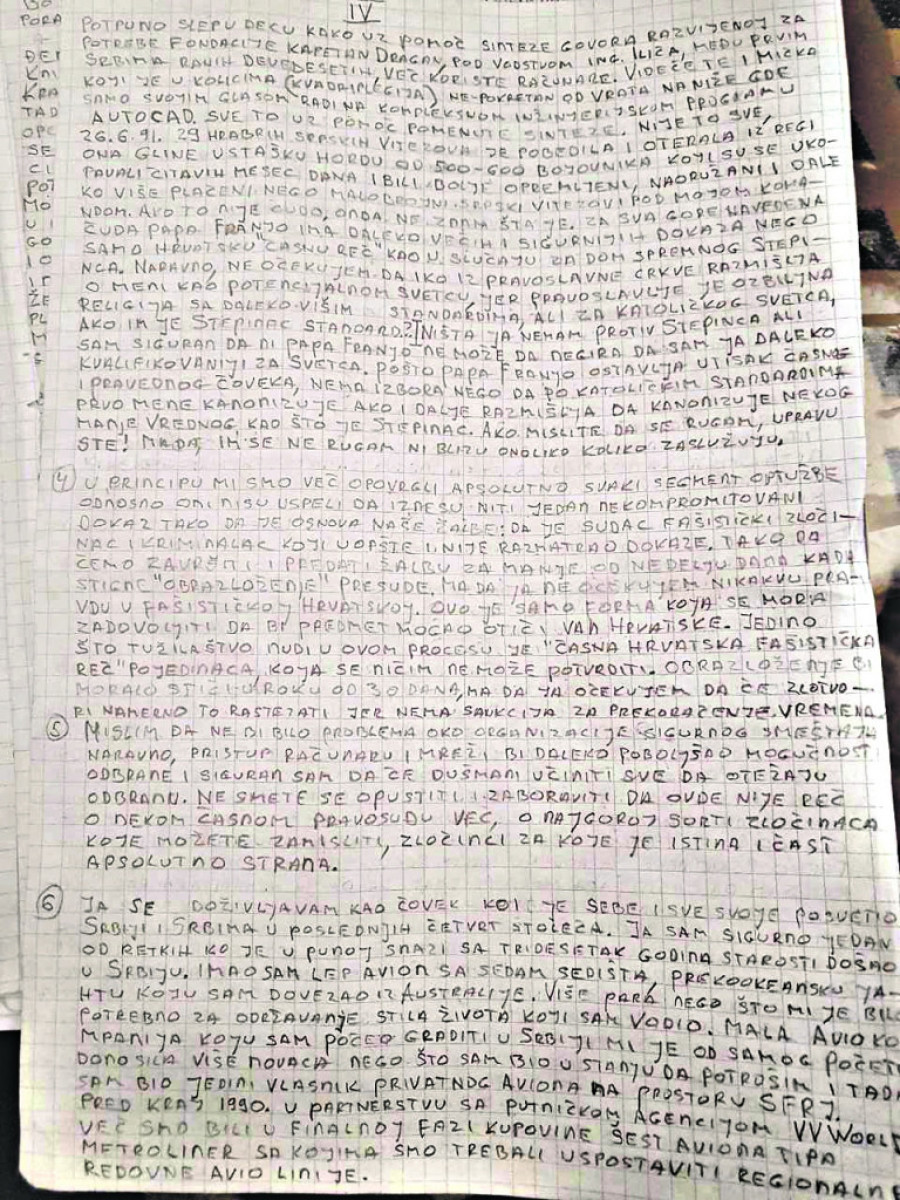 IV
POTPUNO SLEPU DECU KAKO UZ POMOĆ SINTEZE GOVORA RAZVIJENOJ ZA
POTREBE FONDACIJE KAPETAN DRAGAN, POD VODSTVOM ING. ILIĆA, MEĐU PRVIM
SRBIMA RANIH DEVEDESETIH, VEĆ KORISTE RAČUNARE. VIDEĆETE I MIĆKA
KOJI JE U KOLICIMA (KVADRIPLEGIJA) NE-POKRETAN OD VRATA NANIŽE GDE
SAMO SVOJIM GLASOM RADI NA KOMPLEKSNOM INŽINJERIJSKOM PROGRAMU
AUTOCAD. SVE TO UZ POMOĆ POMENUTE SINTEZE. NIJE TO SVE,
26.6.91. 29 HRABRIH SRPSKIH VITEZOVA JE POBEDILA I OTERALA IZ REGI
ONA GLINE USTAŠKU HORDU OD 500-600 BOJOVNIKA KOJI SU SE UKO-
PAVALI ČITAVIH MESEC DANA I BILI BOLJE OPREMLJENI, NAORUŽANI I DALE
KO VIŠE PLAĆENI NEGO MALOBROJNI SRPSKI VITEZOVI POD MOJOM KOMA-
NDOM. AKO TO NIJE ČUDO, ONDA NE ZNAM ŠTA JE. ZA SVA GORE NAVEDENA
ČUDA PAPA FRANJO IMA DALEKO VEĆIH I SIGURNIJIH DOKAZA NEGO
SAMO HRVATSKU "ČASNU REČ" KAO U SLUČAJU ZA DOM SPREMNOG STEPI-
NCA. NARAVNO, NE OČEKUJEM DA IKO IZ PRAVOSLAVNE CRKVE RAZMIŠLJA
O MENI KAO POTENCIJALNOM SVETCU, JER PRAVOSLAVLJE JE OZBILJNA
RELIGIJA SA DALEKO VIŠIM STANDARDIMA, ALI ZA KATOLIČKOG SVETCA,
AKO IM JE STEPINAC STANDARD..? NIŠTA JA NEMAM PROTIV STEPINCA ALI
SAM SIGURAN DA NI PAPA FRANJO NE MOŽE DA NEGIRA DA SAM JA DALEKO
KVALIFIKOVANIJI ZA SVETCA. POŠTO PAPA FRANJO OSTAVLJA UTISAK ČASNOG
I PRAVEDNOG ČOVEKA, NEMA IZBORA NEGO DA PO KATOLIČKIM STANDARDIMA
PRVO MENE KANONIZUJE AKO I DALJE RAZMIŠLJA DA KANONIZUJE NEKOG
MANJE VREDNOG KAO ŠTO JE STEPINAC. AKO MISLITE DA SE RUGAM, UPRAVU
STE! MADA, IM SE NE RUGAM NI BLIZU ONOLIKO KOLIKO ZASLUŽUJU.
④ U PRINCIPU MI SMO VEĆ OPOVRGLI APSOLUTNO SVAKI SEGMENT OPTUŽBE
ODNOSNO ONI NISU USPELI DA IZNESU NITI JEDAN NEKOMPROMITOVANI
DOKAZ TAKO DA JE OSNOVA NAŠE ŽALBE: DA JE SUDAC FAŠISTIČKI ZLOČI-
NAC I KRIMINALAC KOJI UOPŠTE I NIJE RAZMATRAO DOKAZE. TAKO DA
ĆEMO ZAVRŠITI I PREDATI ŽALBU ZA MANJE OD NEDELJU DANA KADA
STIGNE "OBRAZLOŽENJE" PRESUDE. MADA JA NE OČEKUJEM NIKAKVU PRA-
VDU U FAŠISTIČKOJ HRVATSKOJ. OVO JE SAMO FORMA KOJA SE MORA
ZADOVOLJITI DA BI PREDMET MOGAO OTIĆI VAN HRVATSKE. JEDINO
ŠTO TUŽILAŠTVO NUDI U OVOM PROCESU JE "ČASNA HRVATSKA FAŠISTIČKA
REČ" POJEDINACA, KOJA SE NIČIM NE MOŽE POTVRDITI. OBRAZLOŽENJE BI
MORALO STIĆI U ROKU OD 30 DANA, MA DA JA OČEKUJEM DA ĆE ZLOTVO-
RI NAMERNO TO RASTEZATI JER NEMA SANKCIJA ZA PREKORAČENJE VREMENA.
⑤ MISLIM DA NE BI BILO PROBLEMA OKO ORGANIZACIJE SIGURNOG SMEŠTAJA
NARAVNO, PRISTUP RAČUNARU I MREŽI BI DALEKO POBOLJŠAO MOGUĆNOSTI
ODBRANE I SIGURAN SAM DA ĆE DUŠMANI UČINITI SVE DA OTEŽAJU
ODBRANU. NE SMETE SE OPUSTITI I ZABORAVITI DA OVDE NIJE REČ
O NEKOM ČASNOM PRAVOSUĐU VEĆ, O NAJGOROJ SORTI ZLOČINACA
KOJE MOŽETE ZAMISLITI, ZLOČINCI ZA KOJE JE ISTINA I ČAST
APSOLUTNO STRANA.
⑥ JA SE DOŽIVLJAVAM KAO ČOVEK KOJI JE SEBE I SVE SVOJE POSVETIO
SRBIJI I SRBIMA U POSLEDNJIH ČETVRT STOLEĆA. JA SAM SIGURNO JEDAN
OD RETKIH KO JE U PUNOJ SNAZI SA TRIDESETAK GODINA STAROSTI DOŠAO
U SRBIJU. IMAO SAM LEP AVION SA SEDAM SEDIŠTA, PREKOOKEANSKU JA-
HTU KOJU SAM DOVEZAO IZ AUSTRALIJE. VIŠE PARA NEGO ŠTO MI JE BILO
POTREBNO ZA ODRŽAVANJE STILA ŽIVOTA KOJI SAM VODIO. MALA AVIO KO
MPANIJA KOJU SAM POČEO GRADITI U SRBIJI MI JE OD SAMOG POČET
DONOSILA VIŠE NOVACA NEGO ŠTO SAM BIO U STANJU DA POTROŠIM I TADA
SAM BIO JEDINI VLASNIK PRIVATNOG AVIONA NA PROSTORU SFRJ.
PRED KRAJ 1990. U PARTNERSTVU SA PUTNIČKOM AGENCIJOM VV WORLD
VEĆ SMO BILI U FINALNOJ FAZI KUPOVINE ŠEST AVIONA TIPA
METROLINER SA KOJIMA SMO TREBALI USPOSTAVITI REGIONALNE
REDOVNE AVIO LINIJE.